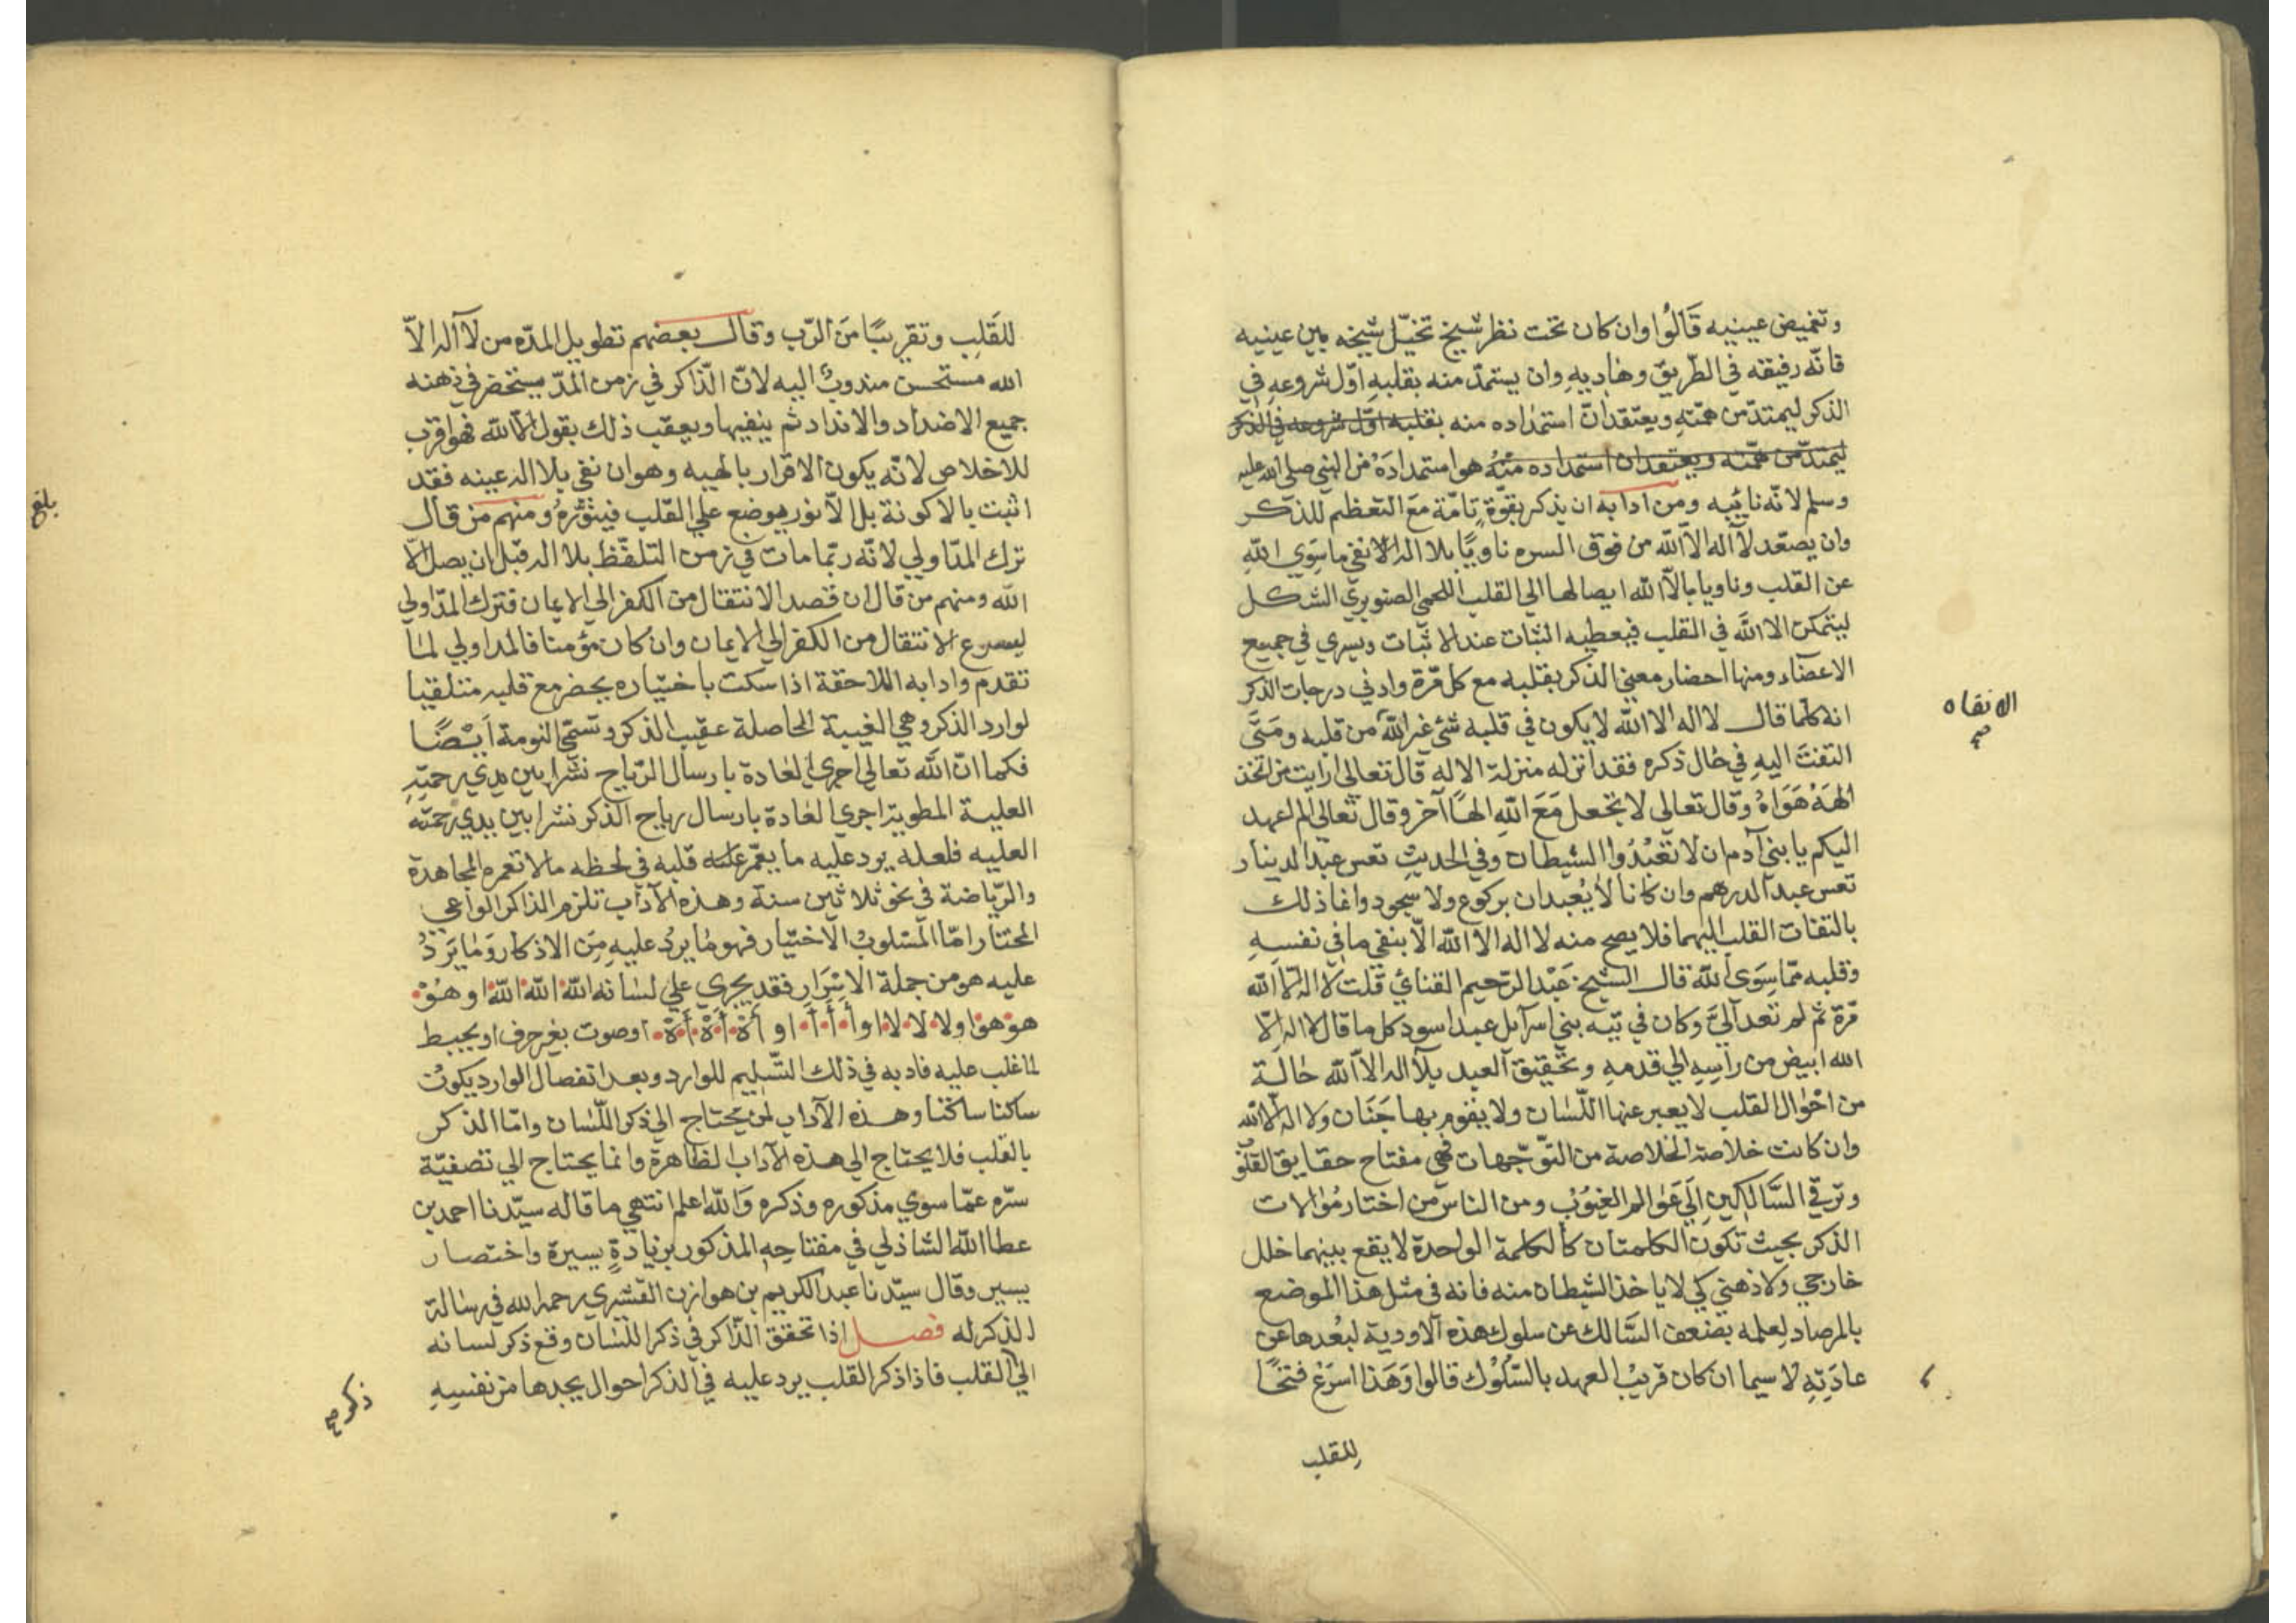 وتغميض عينيه قَالُوا وان كان تحت نظر شيخ تخيّل شيخه بين عينيه
فانّه رفيقه في الطّريق وهاديهِ وان يستمدّ منه بقلبهِ اوّل شروعهِ في
الذكر ليمتدّ من همّتهِ ويعتقد انّ استمداده منه بقلبه اوّل شروعه في الذكر
ليمتدّ من همّته ويعتقد ان استمداده منهُ هو استمدادَهُ من النبي صلى الله عليه
وسلم لانّه نائبه ومن ادابه ان يذكر بقوّة تامّة مَعَ التعظيم للذكر
وان يصعّد لا آله الاّ الله من فوق السره ناويًا بلا اله الا نفي ما سِوَي اللهِ
عن القلب وناويا بالاّ الله ايصالها الي القلب اللحمي الصنوبريّ الشكل
ليتمكن الا الله في القلب فيعطيه الثبات عند الاثبات ويسري في جميع
الاعضاء ومنها احضار معني الذكر بقلبه مع كل مَرة وادني درجات الذكر
انه كلما قال لا اله الا الله لا يكون في قلبه شئ غير الله من قلبه ومَتَي
الا نقاه
صح
التفتَ اليهِ في حال ذكره فقد انزله منزلة الاله قال تعالي ارايت من اتخذ
الههُ هَوَاهُ وقال تعالي لا تجعل مَعَ اللهِ الهًا آخر وقال تعالي الم اعهد
اليكم يا بني آدم ان لا تعْبُدُوا الشيطان وفي الحديثِ تعس عبد الدينار
تعس عبد الدرهم وان كانا لا يُعبدان بركوع ولا سجود وانما ذلك
بالتفات القلب اليهما فلا يصح منه لا اله الا الله الاّ بنفي ما في نفسهِ
وقلبه ممّا سِوَي الله قال الشيخ عَبْد الرّحيم القنائي قلت لا اله الا الله
مَرّة ثم لم تعد اليَّ وكان في تيه بني اسرآئل عبد اسود كل ما قال لا اله الا
الله ابيض من راسِهِ الي قدمهِ وتحقيق العبد بلا اله الاّ الله حالة
من احْوَال القلب لا يعبر عنها اللّسَان ولا يقوم بها جَنَان ولا اله الا الله
وان كانت خلاصة الخلاصة من التوّجّهات فهي مفتاح حقايق القلوُ
وترقي السَّالكين اِلَي عَوَالم الغيُوُب ومن الناس من اختار مُوَالات
الذكر بحيث تكون الكلمتان كالكلمة الواحدة لا يقع بينهما خلل
خارجي ولا ذهني كي لا ياخذ الشيطان منه فانه في مثل هذا الموضع
بالمرصاد لعلمه بضعف السَّالك عن سلوك هذه الاودية لبُعدها عن
عادَتِهِ لا سيما ان كان قريبُ العهد بالسّلُوْك قالوا وَهَذا اسرَعُ فتحًا
للقلب
للقَلبِ وتقريبًا مَن الرّب وقال بعضهم تطويل المدّه من لا آله الاّ
الله مستحسن مندوبٌ اليه لانّ الذّاكر في زمن المدّ يستحضر في ذهنه
جميع الاضداد والانداد ثم ينفيها ويعقب ذلك بقول الاّ الله فهو اقرب
للاخلاص لانّه يكون الاقرار بالهيه وهو ان نفي بلا اله عينه فقد
اثبت بالا كونة بل الاّ نور يوضع علي القلب فينوّرهُ ومنهم من قال
بلغ
ترك المدّ اولي لانّه ربّما مات في زمن التلفّظ بلا اله قبل ان يصل الاّ
الله ومنهم من قال ان قصد الانتقال من الكفر الي الايمان فترك المدّ اولي
ليسرع الانتقال من الكفر الي الايمان وان كان مؤمنا فالمد اولي لما
تقدم وادابه اللاحقة اذا سكت باختياره يحضر مع قلبه متلقيا
لوارد الذكر وهي الغيبة الحاصلة عقيب الذكر وتسمّي النومة اَيْضًا
فكما انّ الله تعالي اجري العادة بارسال الرّياح نشرا بين يدي رحمتِهِ
العلية المطوية اجري العادة بارسال رياح الذكر نشرا بين يدي رحمته
العليه فلعله يرد عليه ما يعمّر قلبه في لحظه مالا تعمره المجاهدة
والرّياضة في نحو ثلاثين سنة وهذه الآداب تلزم الذاكر الواعي
المختار امّا المَسْلوبُ الاختيار فهو ما يردُ عليهِ مِن الاذكار وَمَا يَرَدُ
عليه هو من جملة الاسْرَار فقد يجري علي لسَانه الله الله الله او هُوْ
هوْ هوْ او لا لا لا او أ أ أ او أهْ أهْ أهْ او صوت بغير حرف او يخبط
لما غلب عليه فادبه في ذلك التّسْليم للوارد وبعد انفصال الوارد يكونُ
ساكنا ساكتا وهذه الآداب لمن يحتاج الي ذكر اللّسَان وامّا الذكر
بالقلب فلا يحتاج الي هذه الآداب الظاهرة وانما يحتاج الي تصفيّة
سّره عمّا سوي مذكوره وذكره وَالله اعلم انتهي ما قاله سيّدنا احمد بن
عطا الله الشاذلي في مفتاحِهِ المذكور بزيادةٍ يسيرة واختصار
يسير وقال سيّدنا عبد الكريم بن هوازن القشيري رحمه الله في رسالة
الذكر له فصل اذا تحقق الذّاكر في ذكر اللسَان وقع ذكر لسانه
الي القلب فاذا ذكر القلب يرد عليه في الذكر احوال يجدها من نفسهِ
ذكره صح